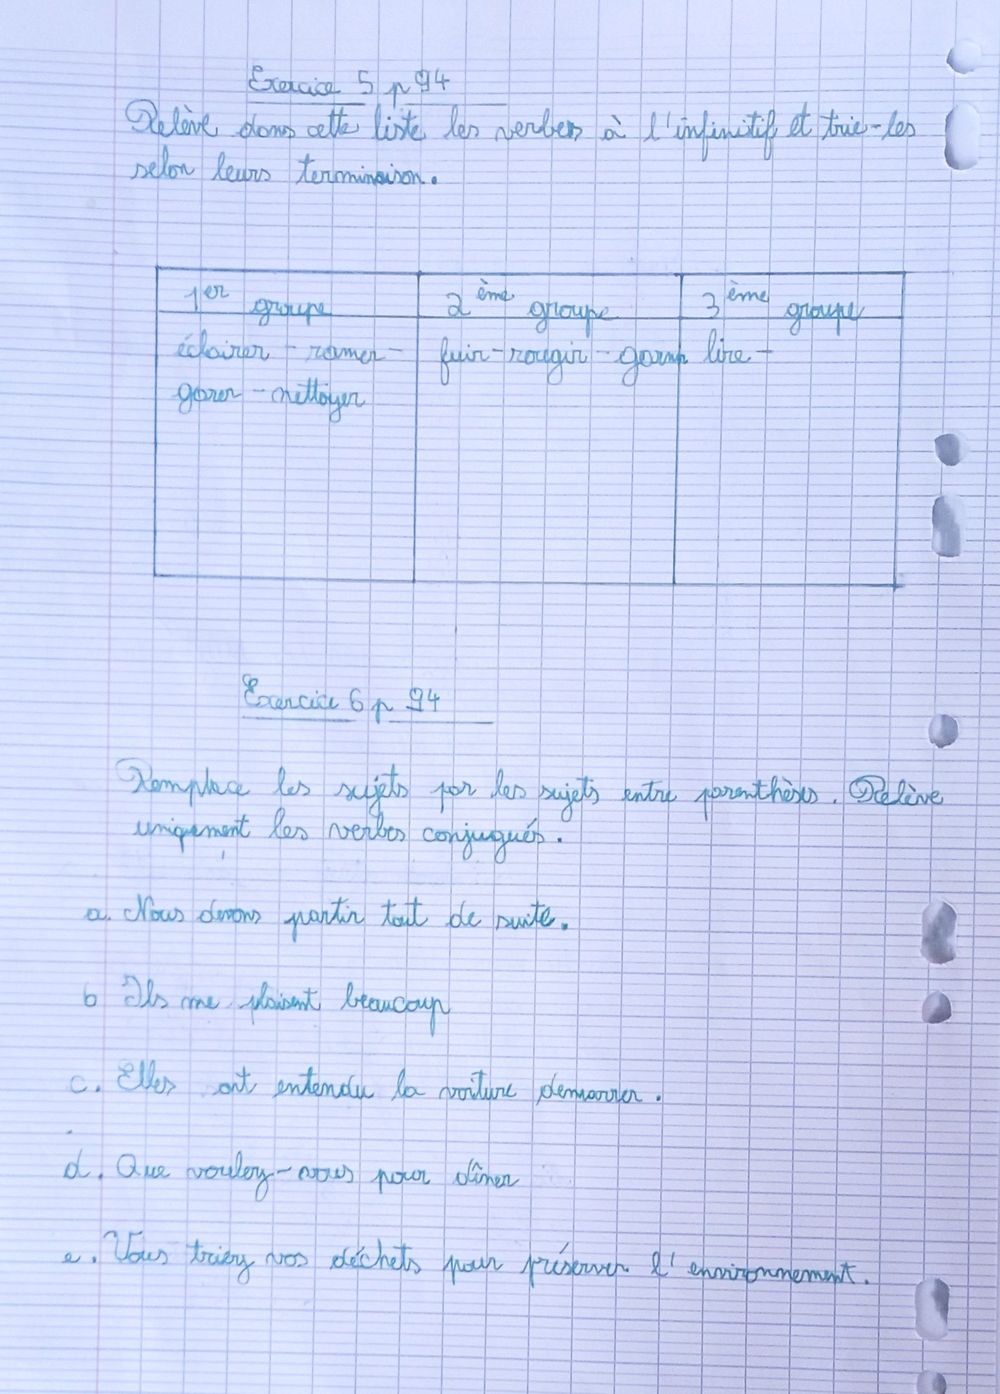 Exercice 5 p 94
Relève dans cette liste les verbes à l'infinitif et trie-les
selon leurs terminaison.
1er groupe
2ème groupe
3ème groupe
éclairer - ramer -
garer - nettoyer
fuir - rougir - garnir
lire -
Exercice 6 p 94
Remplace les sujets par les sujets entre parenthèses. Relève
uniquement les verbes conjugués.
a. Nous devons partir tout de suite.
b Ils me plaisent beaucoup
c. Elles ont entendu la voiture demarrer.
d. Que voulez-vous pour dîner
e. Vous triez vos déchets pour préserver l'environnement.